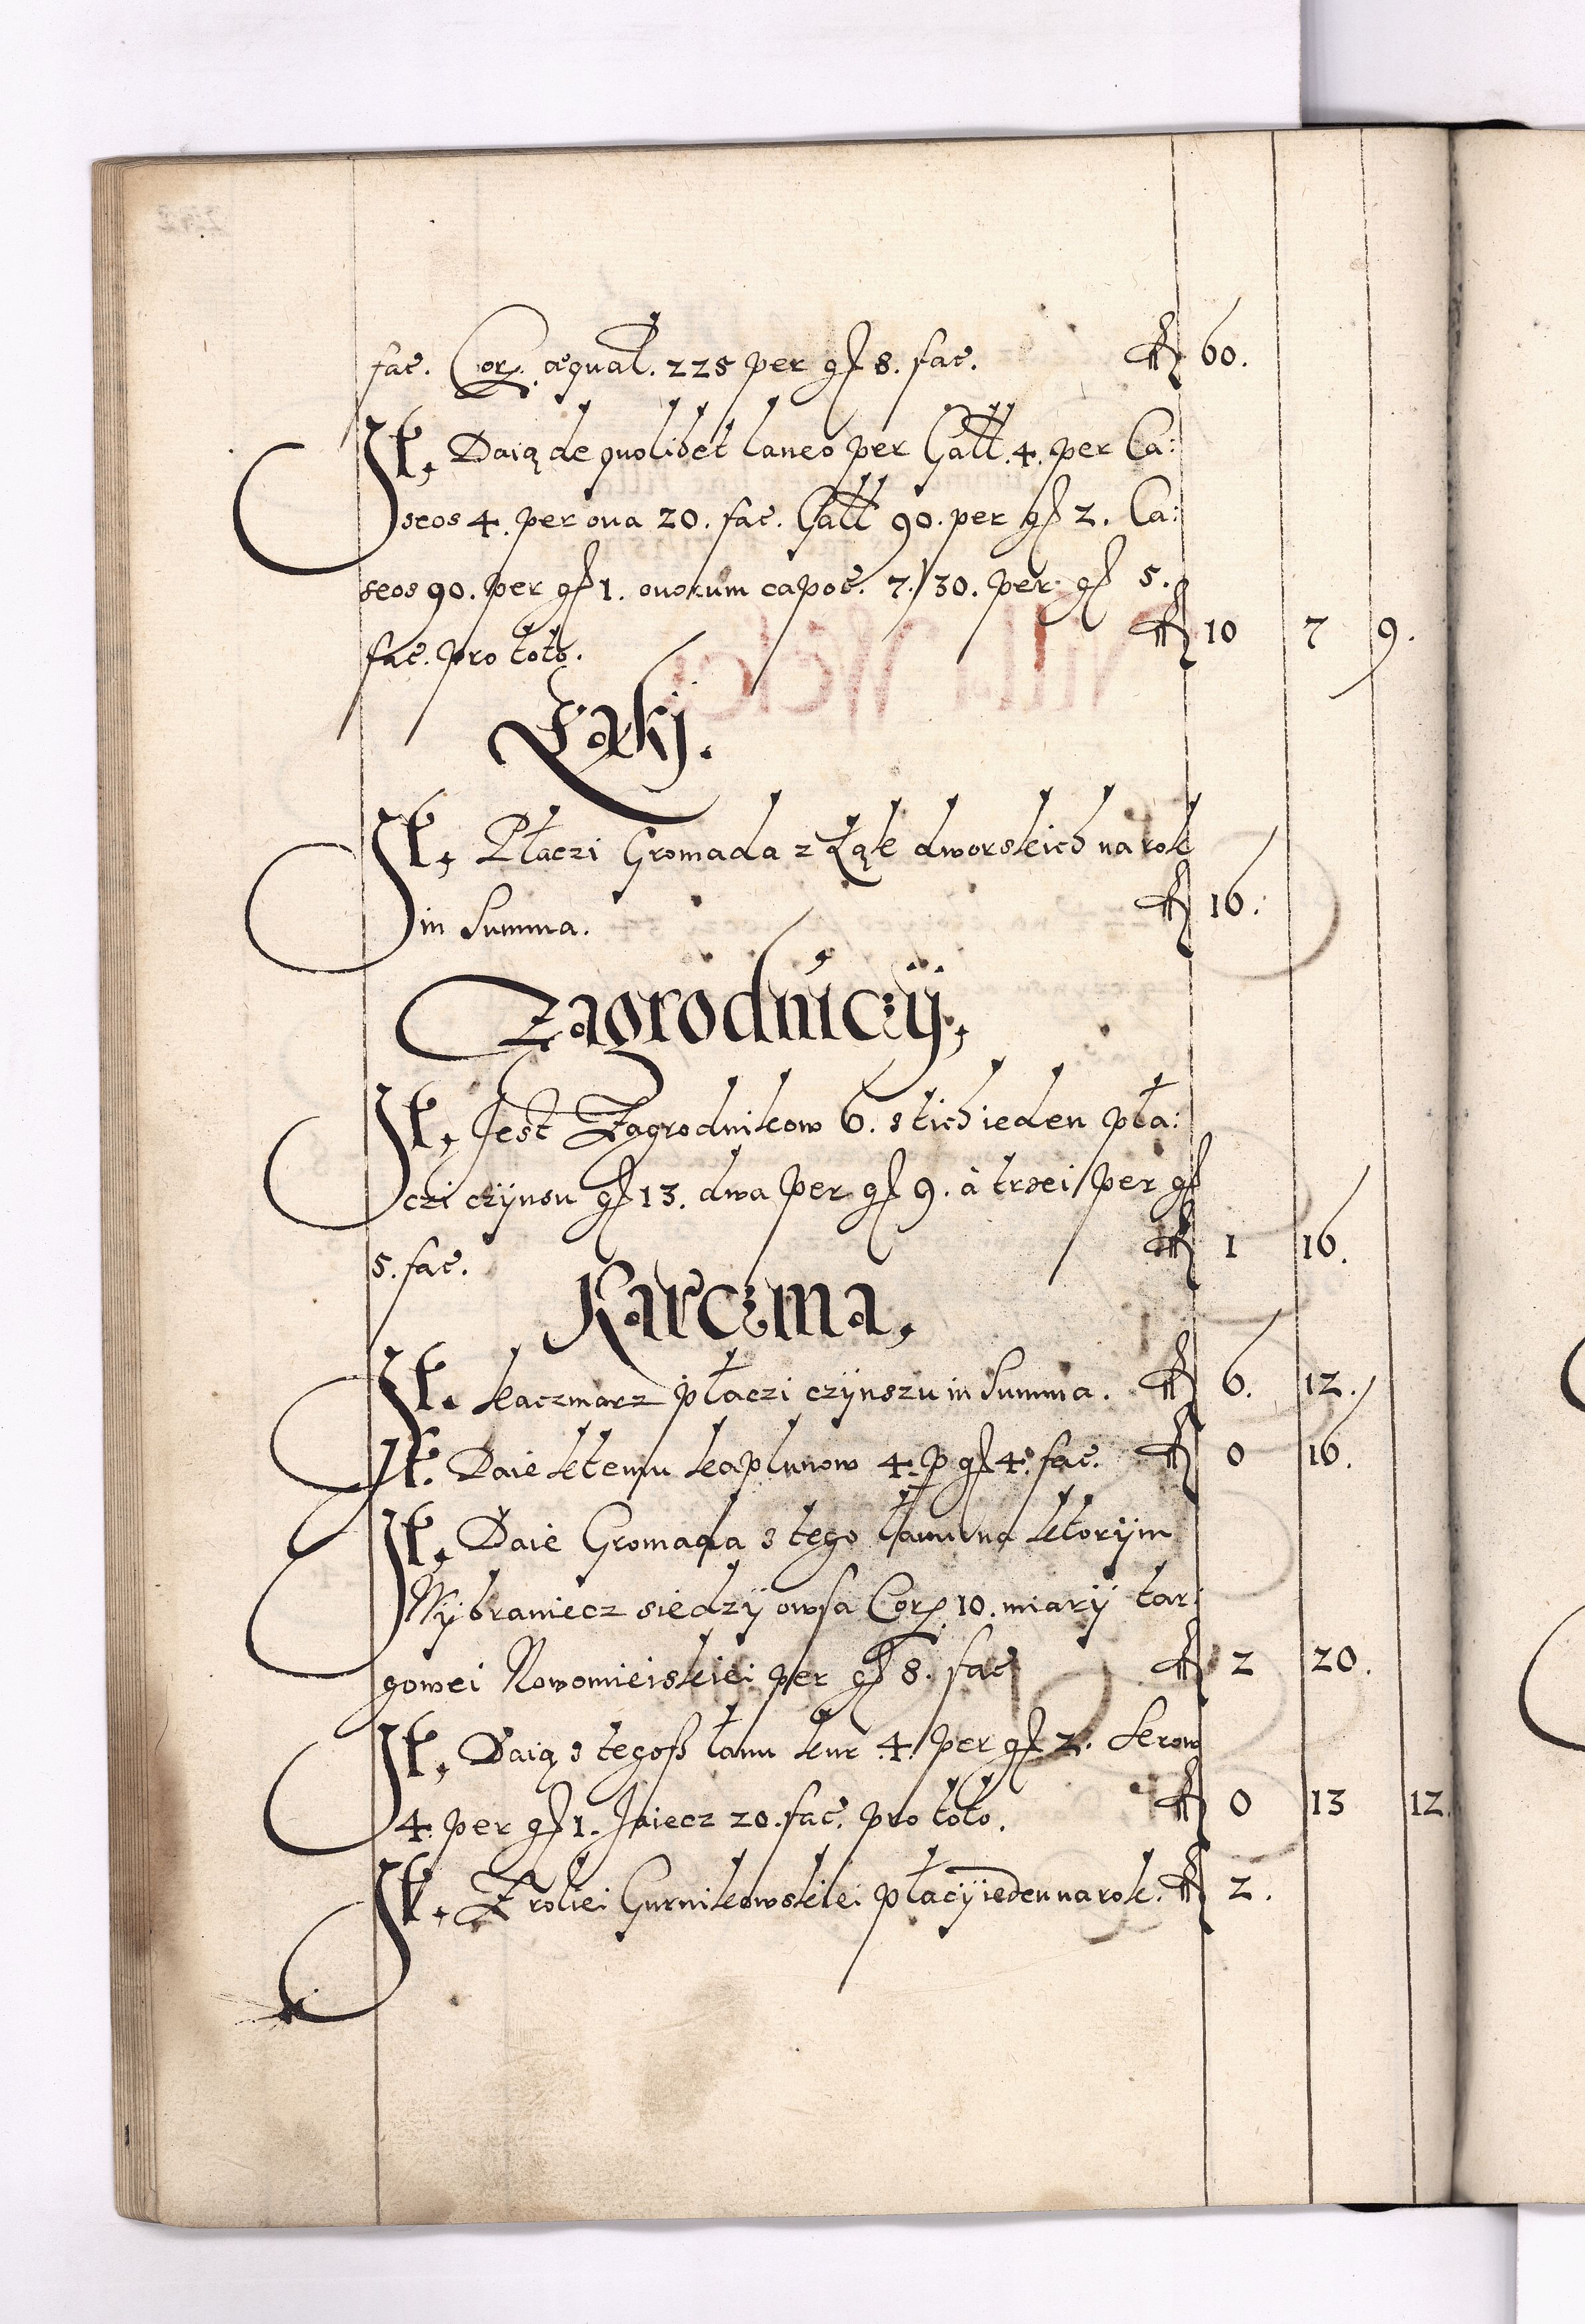 fac. Cor. æqual. 225 per gſ 8. fac. fl 60.
It. Daią de quolibet laneo per Gall. 4. per Ca:
seos 4. per oua 20. fac. Gall 90. per gſ 2. Ca:
seos 90. per gſ 1. ouorum capoc. 7./30. per gſ 5.
fac. pro toto. fl 10 7 9.
Łąkj.
It. Płaczi Gromada z Łąk dworskich na rok
in Summa. fl 16.
Zagrodniczÿ.
It. Jest Zagrodnikow 6. s tich ieden pła:
czi czÿnsu gſ 13. dwa per gſ 9. à trzei per gſ
5. fac. fl 1 16.
Karczma.
It. kaczmarz płaczi czÿnszu in Summa. fl 6. 12.
It. Daie ktemu kapłunow 4. p gſ 4. fac. fl 0 16.
It. Daie Gromada s tego łanu na ktorÿm
Wÿbraniecz siedzÿ owsa Cor. 10. miarÿ tar:
gowei Nowomieiskiei per gſ 8. fac fl 2 20.
It. Daią s tegoß łanu kur 4. per gſ 2. serow
4. per gſ 1. Jaiecz 20. fac. pro toto. fl 0 13 12.
It. Z roliei Gurnikowskiei płacÿ ieden na rok. fl 2.